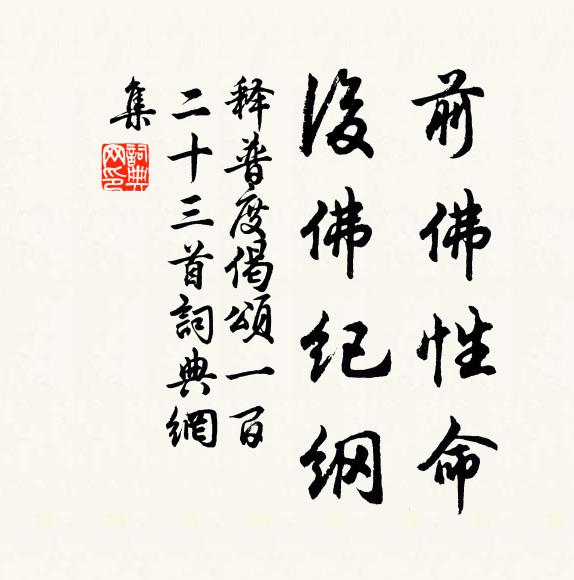 前佛性命
後佛纪纲
释普度偈頌一百
二十三首詞典網
集
詞典网印